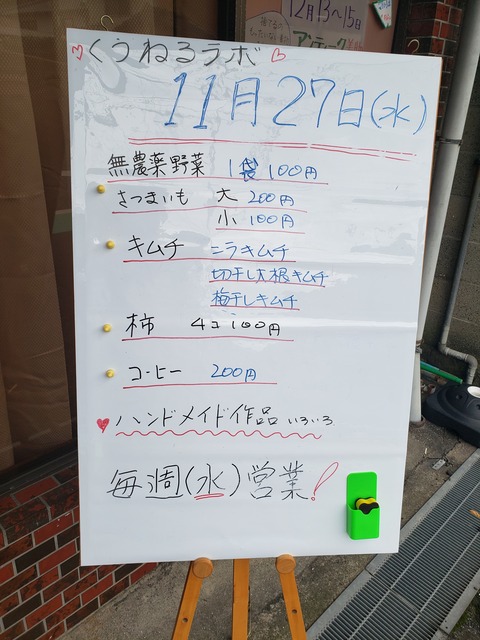 12月13〜15日
アンティーク
くうねるラボ
11月27日(水)
無農薬野菜 1袋100円
さつまいも 大 200円
小 100円
キムチ ニラキムチ
切干し大根キムチ
梅干しキムチ
柿 4コ100円
コーヒー 200円
ハンドメイド作品 いろいろ
毎週(水)営業!